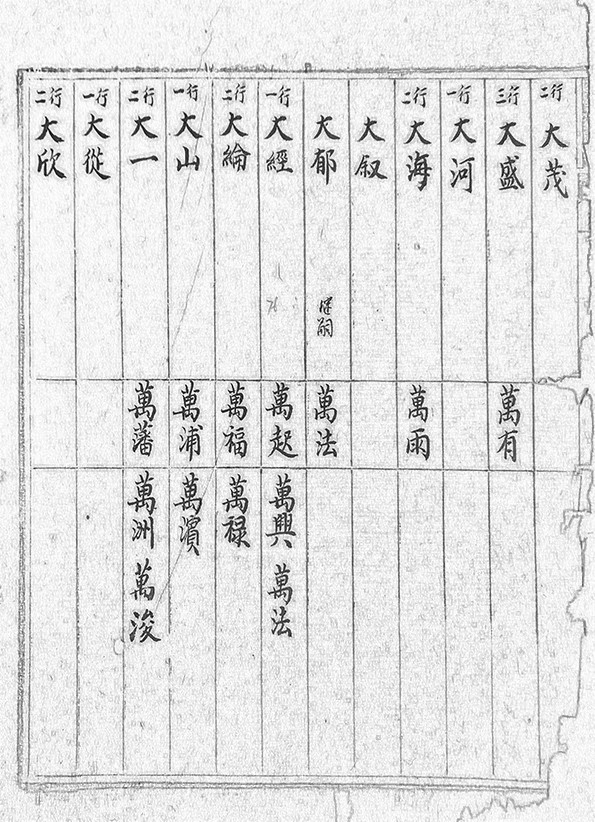 行二 大茂
行三 大盛 萬有
行一 大河
行二 大海 萬雨
大叙
大郁 継嗣 萬法
行一 大經 萬起 萬興 萬法
行二 大綸 萬福 萬祿
行一 大山 萬浦 萬濱
行二 大一 萬藩 萬洲 萬浚
行一 大從
行二 大欣